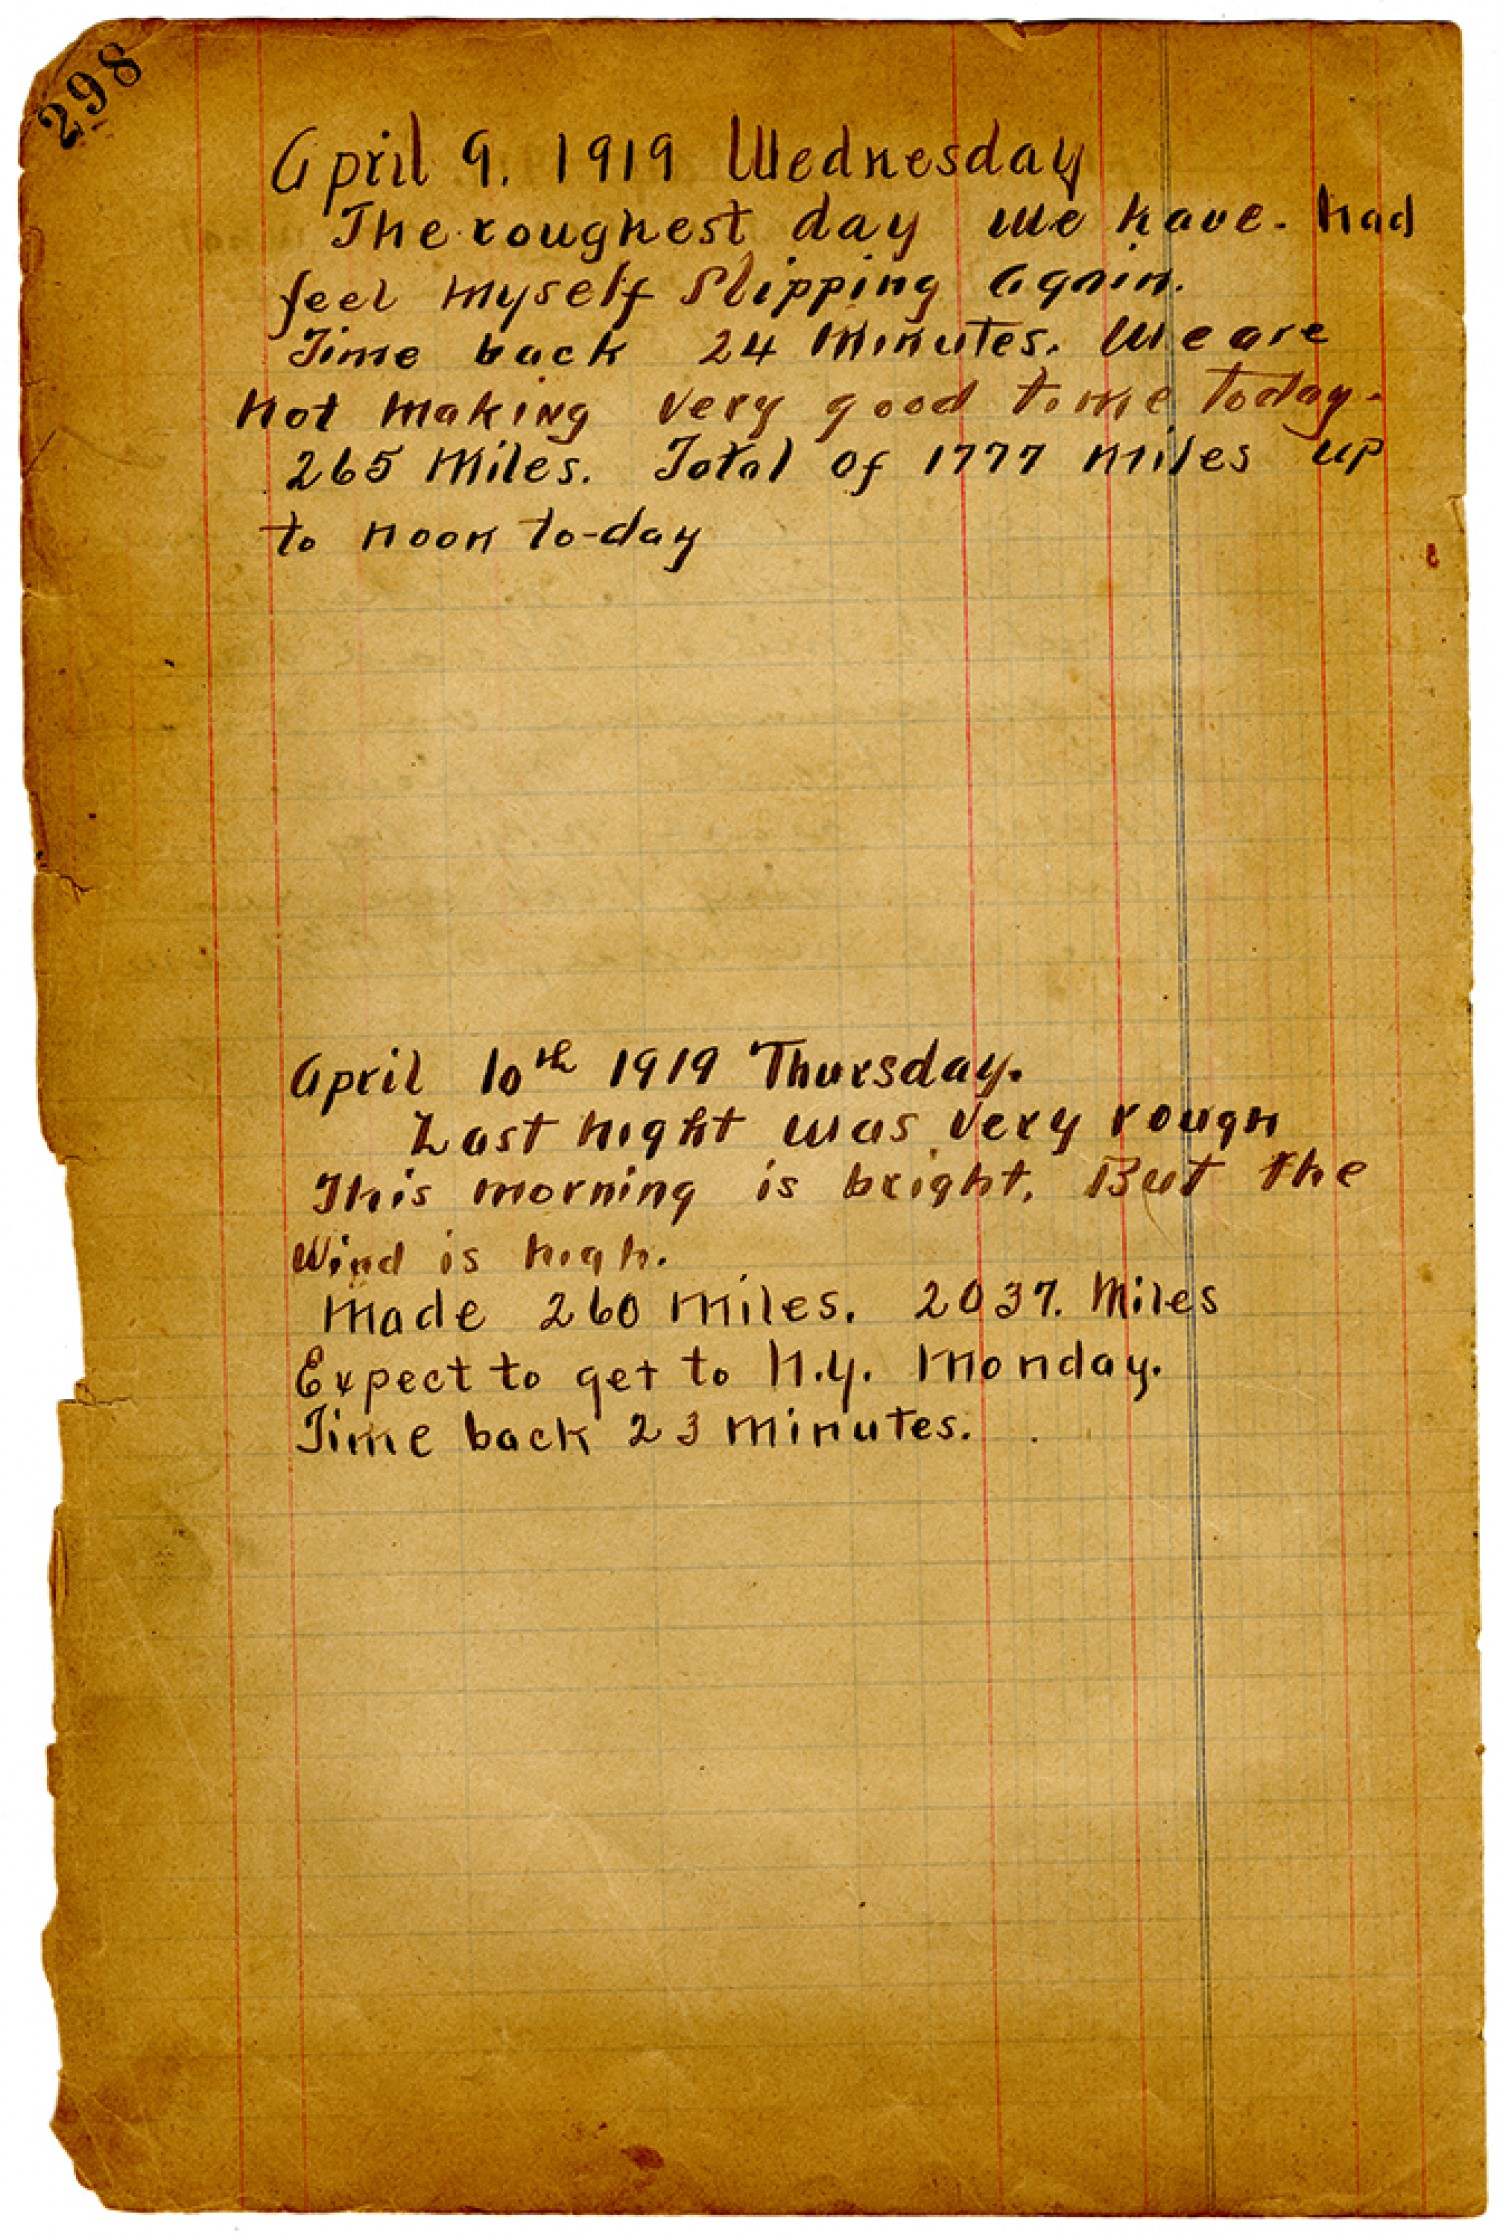 298
April 9. 1919 Wednesday
The roughest day we have. had
feel myself slipping again.
Time back 24 minutes. We are
not making very good time today.
265 miles. Total of 1777 miles up
to noon to-day
April 10th 1919 Thursday.
Last night was very rough
This morning is bright. But the
wind is high.
Made 260 miles. 2037. Miles
Expect to get to N.Y. Monday.
Time back 23 minutes.